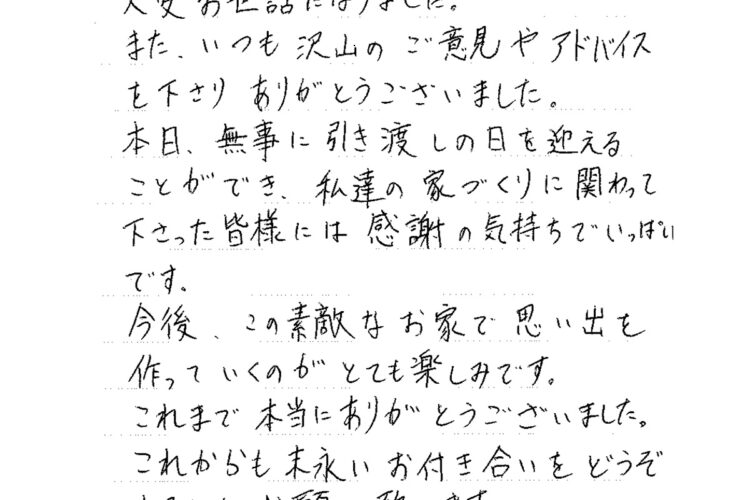 大変お世話になりました。
また、いつも沢山のご意見やアドバイス
を下さりありがとうございました。
本日、無事に引き渡しの日を迎える
ことができ、私達の家づくりに関わって
下さった皆様には感謝の気持ちでいっぱい
です。
今後、この素敵なお家で思い出を
作っていくのがとても楽しみです。
これまで本当にありがとうございました。
これからも末永いお付き合いをどうぞ